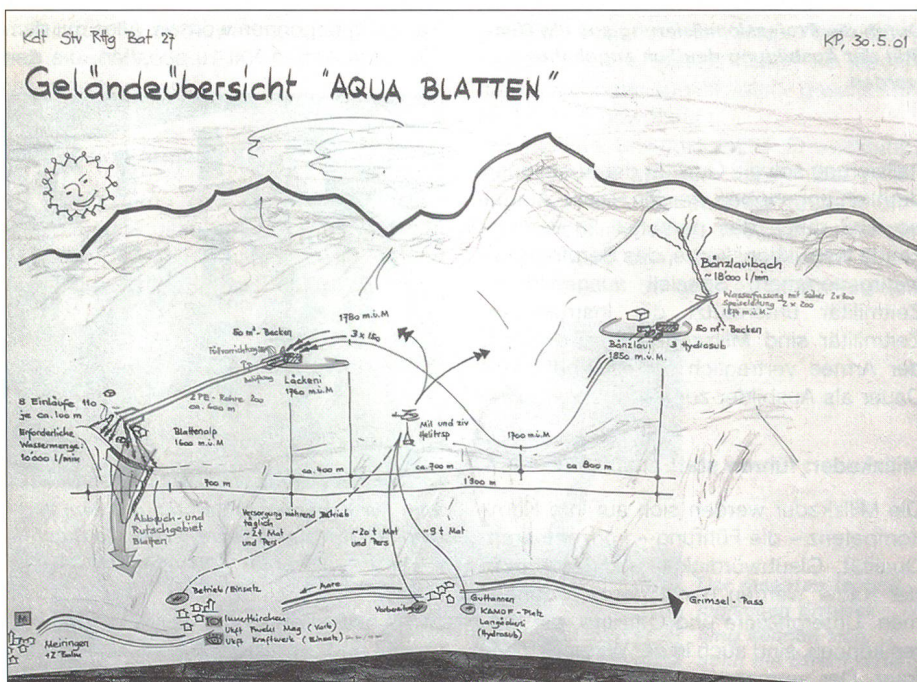 Kdt Stv Rttg Bat 21
KP, 30.5.01
Geländeübersicht "AQUA BLATTEN"
Bänzlauibach
~ 18'000 l/min
Wasserfassung mit 2x200
Speiseleitung 2 x 200
1874 m.ü.M.
50 m³-Becken
3 Hydrosub
Bänzlaui
1850 m.ü.M.
1780 m.ü.M
3 x 150
50 m³-Becken
Läckeni
1760 m.ü.M
2 PE-Rohre 200
ca. 600 m
8 Einläufe 110
je ca. 100 m
Erforderliche
Wassermenge:
10'000 l/min
Blattenalp
1600 m.ü.M
Mil und ziv
Helitrsp
1700 m.ü.M
ca. 400 m
ca. 700 m
ca 800 m
700 m
1'900 m
Abbruch- und
Rutschgebiet
Blatten
Versorgung während Betrieb
täglich
~ 2t Mat
und Pers
~20t Mat
und Pers
~ 9t Mat
Betrieb/Einsatz
Aare
Innertkirchen
Ukft Mag (Vorb)
Ukft Kraftwerk (Einsatz)
Vorbereitg
Guttannen
KAMOF-Platz
(Hydrosub)
Grimsel-Pass
M
Meiringen